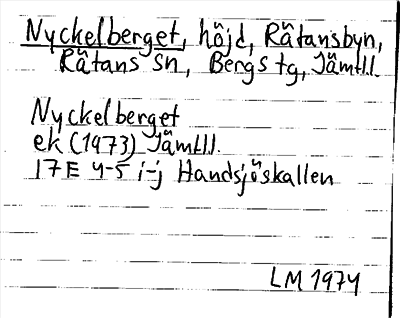 Nyckelberget, höjd, Rätansbyn,
Rätans sn, Bergs tg, Jämtl.
Nyckelberget
ek (1973) Jämtl.
17E 4-5 i-j Handsjöskallen
LM 1974